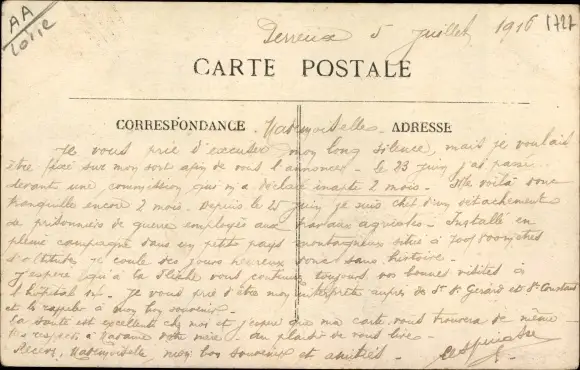 AA
Loire
5 Juillet 1916
1727
CARTE POSTALE
CORRESPONDANCE
ADRESSE
Mademoiselle.
Je vous prie d'excuser mon long silence, mais je voulais
être fixé sur mon sort afin de vous l'annoncer. Le 23 juin j'ai passé
devant une commission qui m'a déclaré inapte 2 mois. Me voilà donc
tranquille encore 2 mois. Depuis le 25 juin je suis chef d'un détachement
de prisonniers de guerre employés aux travaux agricoles. Installé en
pleine campagne dans un petit pays montagneux situé à mètres
d'altitude, je coule des jours heureux sans histoire.
J'espère qu'à la Flèche vous continuez toujours vos bonnes visites à
l'hôpital Je vous prie d'être mon interprète auprès de Gérard et
et le rappeler à mon bon souvenir.
La santé est excellente chez moi et j'espère que ma carte vous trouvera de même.
Mes respects à Madame votre mère. Au plaisir de vous lire.
Recevez, Mademoiselle, mon bon souvenir et amitiés.